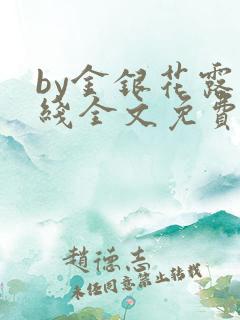 by金银花露
线全文免费
赵德志
未经同意禁止转载